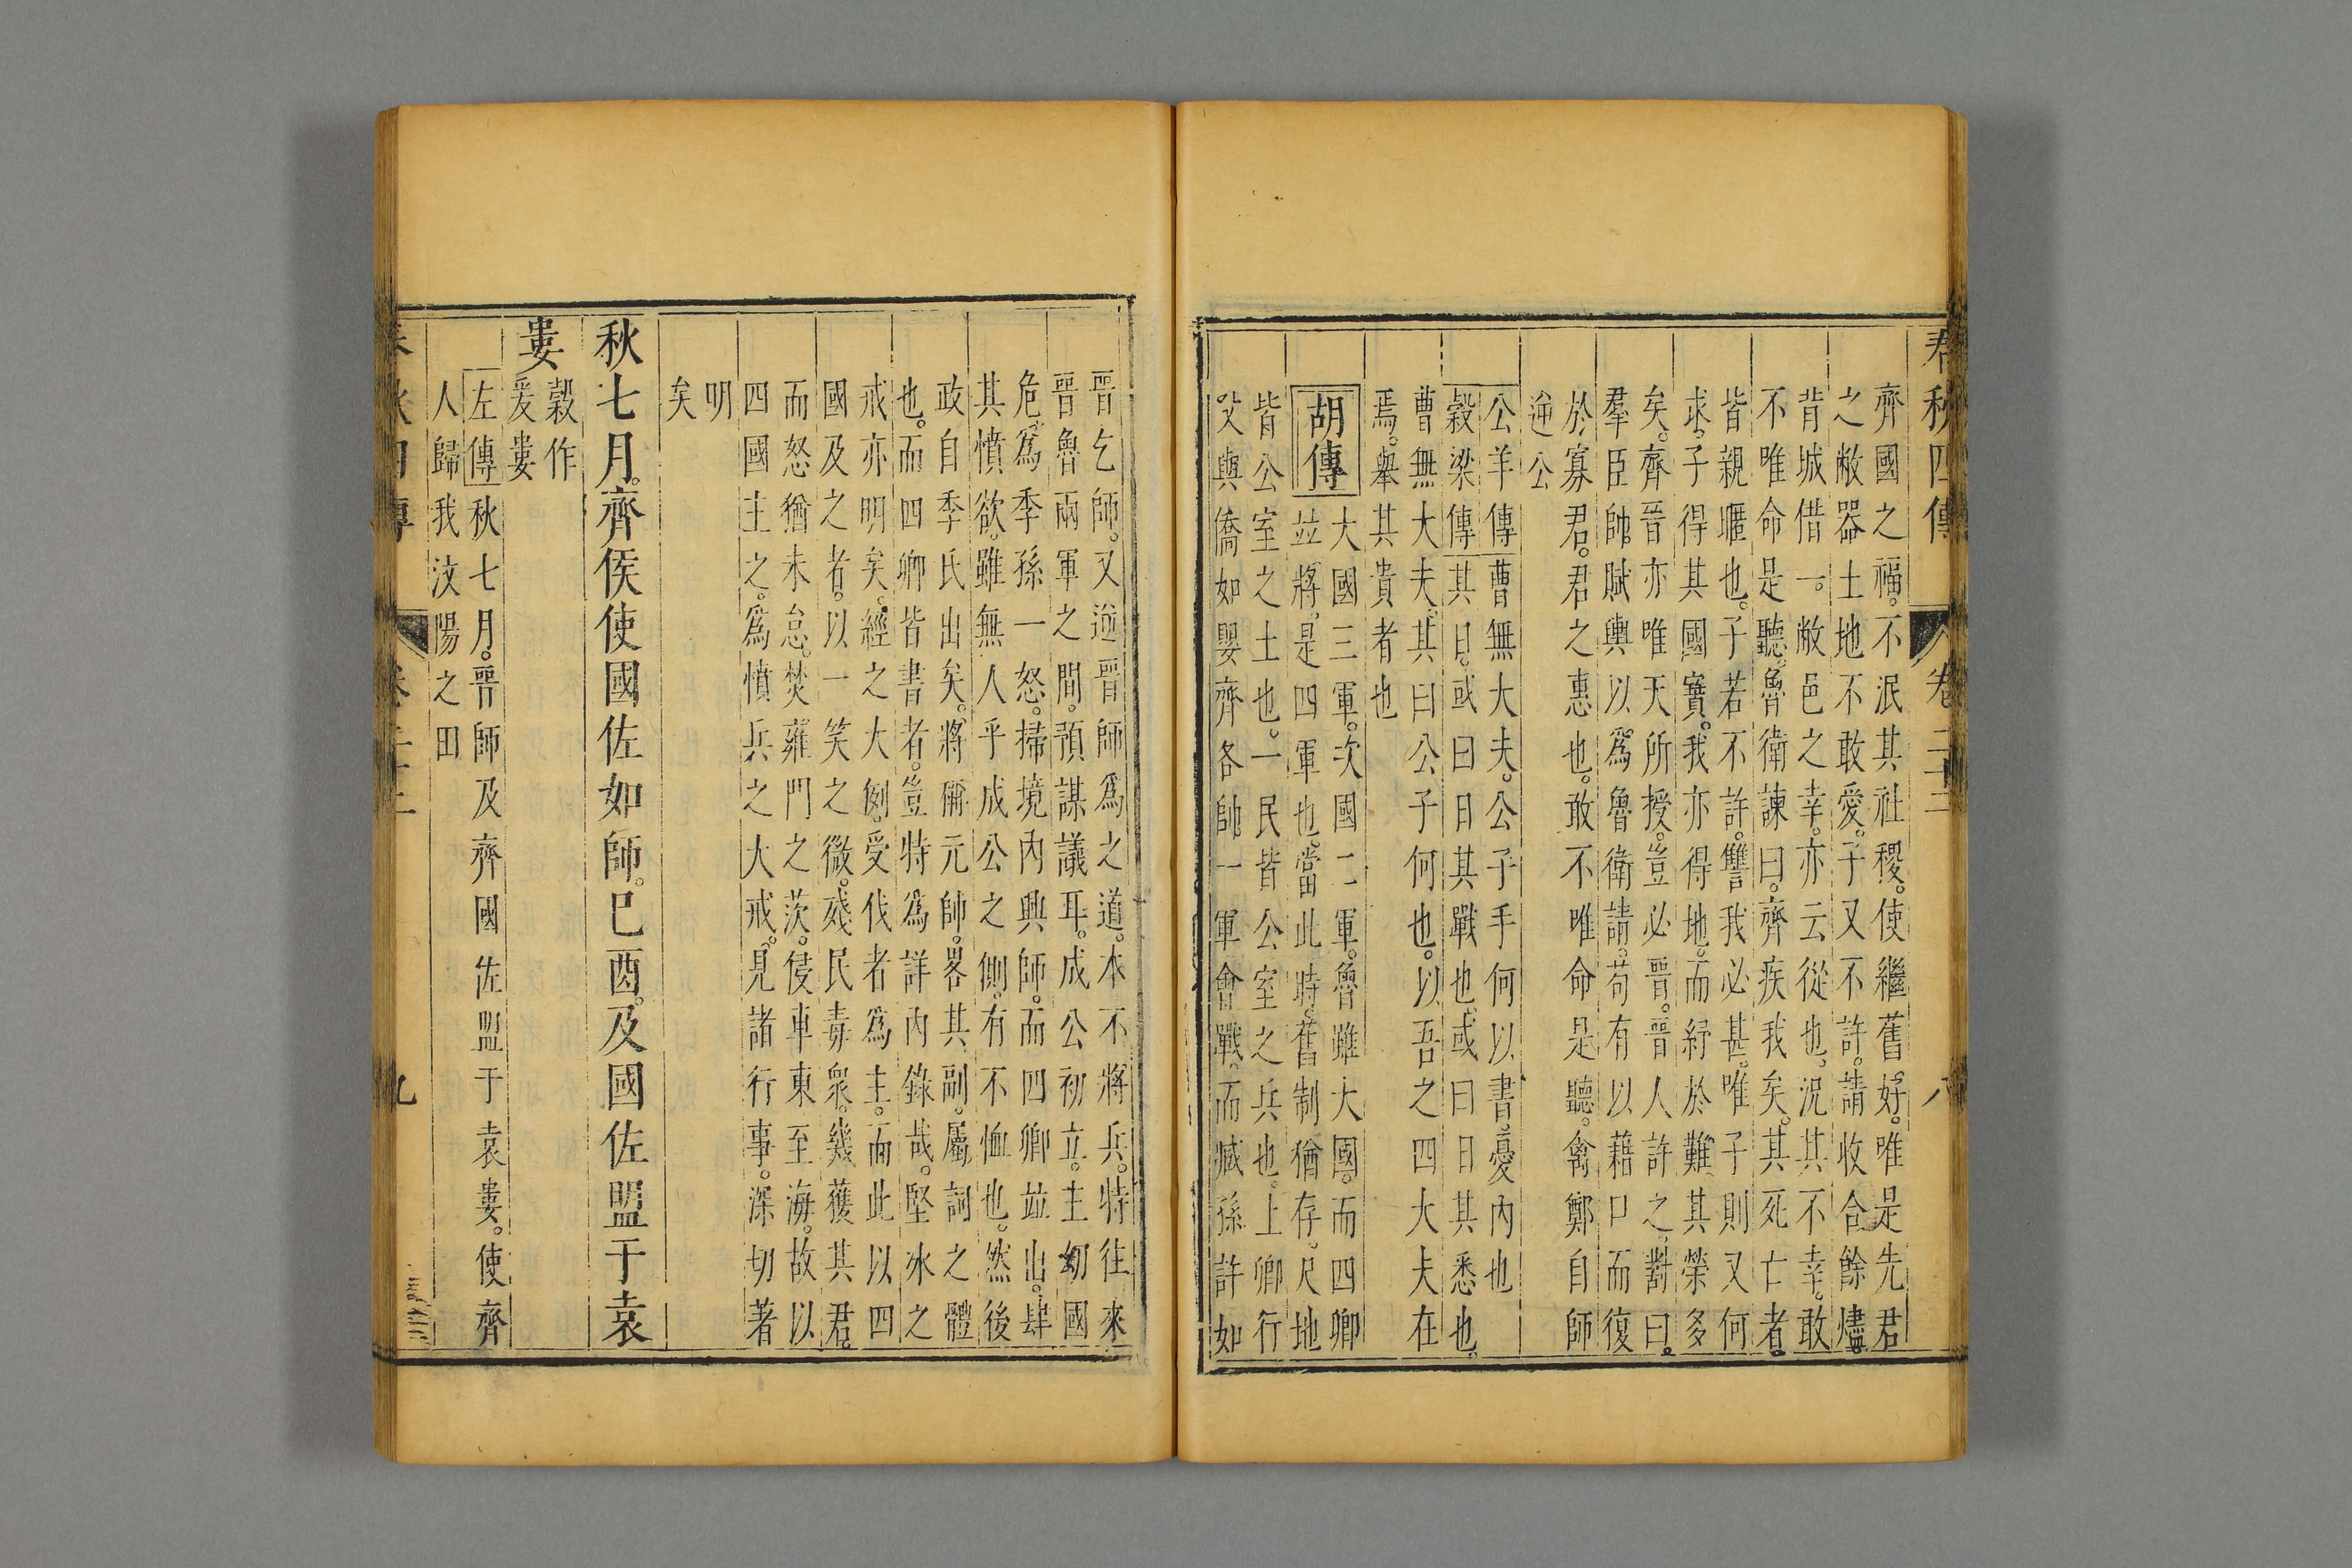 春秋四傳 卷二十二 八
齊國之福。不泯其社稷。使繼舊好。唯是先君
之敝器土地不敢愛。子又不許。請收合餘燼。
背城借一。敝邑之幸。亦云從也。況其不幸。敢
不唯命是聽。魯衛諫曰。齊疾我矣。其死亡者。
皆親暱也。子若不許。讐我必甚。唯子則又何
求。子得其國寶。我亦得地。而紓於難。其榮多
矣。齊晉亦唯天所授。豈必晉。晉人許之。對曰。
羣臣帥賦輿以爲魯衛請。苟有以藉口而復
於寡君。君之惠也。敢不唯命是聽。禽鄭自師
逆公
公羊傳曹無大夫。公子手何以書。憂內也
穀梁傳其日。或曰日其戰也。或曰日其悉也。
曹無大夫。其曰公子何也。以吾之四大夫在
焉。舉其貴者也
胡傳大國三軍。次國二軍。魯雖大國。而四卿
並將。是四軍也。當此時。舊制猶存。尺地
皆公室之土也。一民皆公室之兵也。上卿行
父與僑如嬰齊各帥一軍會戰。而臧孫許如
晉乞師。又逆晉師爲之道。本不將兵。特往來
晉魯兩軍之間。預謀議耳。成公初立。主幼國
危。爲季孫一怒。掃境內興師。而四卿並出。肆
其憤欲。雖無人乎成公之側。有不恤也。然後
政自季氏出矣。將稱元帥。畧其副。屬詞之體
也。而四卿皆書者。豈特爲詳內錄哉。堅冰之
戒亦明矣。經之大例。受伐者爲主。而此以四
國及之者。以一笑之微。殘民毒衆。幾獲其君。
而怒猶未怠。焚雍門之茨。侵車東至海。故以
四國主之。爲憤兵之大戒。見諸行事。深切著
明
矣
秋七月。齊侯使國佐如師。已酉。及國佐盟于袁
婁
穀作
爰婁
左傳秋七月。晉師及齊國佐盟于袁婁。使齊
人歸我汶陽之田
春秋四傳 卷二十二 九